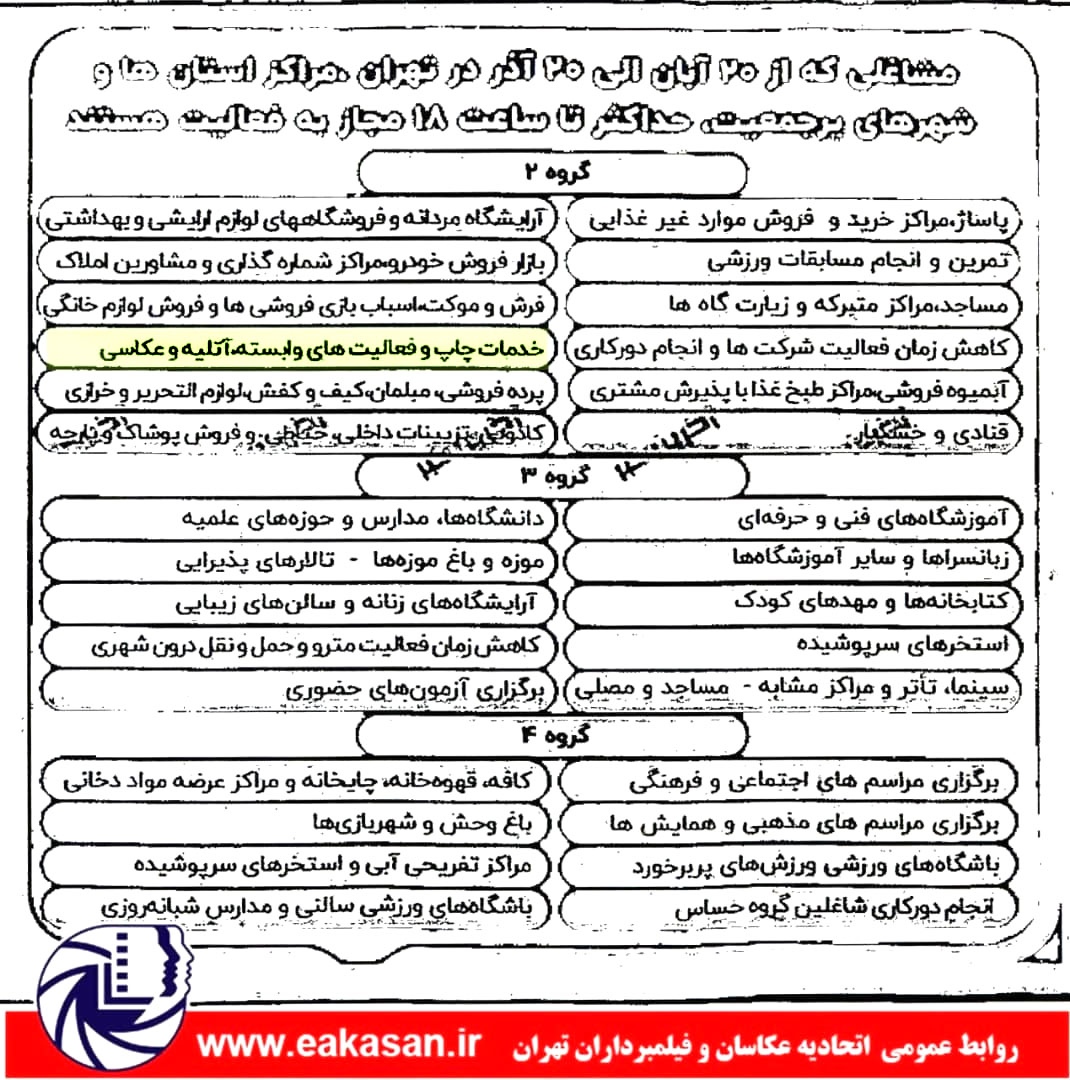 مشاغلی که از ۲۰ آبان الی ۲۰ آذر در تهران ،مراکز استان ها و
شهرهای پرجمعیت، حداکثر تا ساعت ۱۸ مجاز به فعالیت هستند
گروه ۲
پاساژ،مراکز خرید و فروش موارد غیر غذایی
آرایشگاه مردانه و فروشگاههای لوازم آرایشی و بهداشتی
تمرین و انجام مسابقات ورزشی
بازار فروش خودرو،مراکز شماره گذاری و مشاورین املاک
مساجد،مراکز متبرکه و زیارت گاه ها
فرش و موکت،اسباب بازی فروشی ها و فروش لوازم خانگی
کاهش زمان فعالیت شرکت ها و انجام دورکاری
خدمات چاپ و فعالیت های وابسته،آتلیه و عکاسی
آبمیوه فروشی،مراکز طبخ غذا با پذیرش مشتری
پرده فروشی، مبلمان،کیف و کفش،لوازم التحریر و خرازی
قنادی و خشکبار
تزیینات داخلی، خیاطی، و فروش پوشاک و پارچه
گروه ۳
آموزشگاه‌های فنی و حرفه‌ای
دانشگاه‌ها، مدارس و حوزه‌های علمیه
زبانسراها و سایر آموزشگاه‌ها
موزه و باغ موزه‌ها - تالارهای پذیرایی
کتابخانه‌ها و مهدهای کودک
آرایشگاه‌های زنانه و سالن‌های زیبایی
استخرهای سرپوشیده
کاهش زمان فعالیت مترو و حمل و نقل درون شهری
سینما، تأتر و مراکز مشابه - مساجد و مصلی
برگزاری آزمون‌های حضوری
گروه ۴
برگزاری مراسم های اجتماعی و فرهنگی
کافه، قهوه‌خانه، چایخانه و مراکز عرضه مواد دخانی
برگزاری مراسم های مذهبی و همایش ها
باغ وحش و شهربازی‌ها
باشگاه‌های ورزشی ورزش‌های پربرخورد
مراکز تفریحی آبی و استخرهای سرپوشیده
انجام دورکاری شاغلین گروه حساس
باشگاه‌های ورزشی سالنی و مدارس شبانه‌روزی
روابط عمومی اتحادیه عکاسان و فیلمبرداران تهران www.eakasan.ir